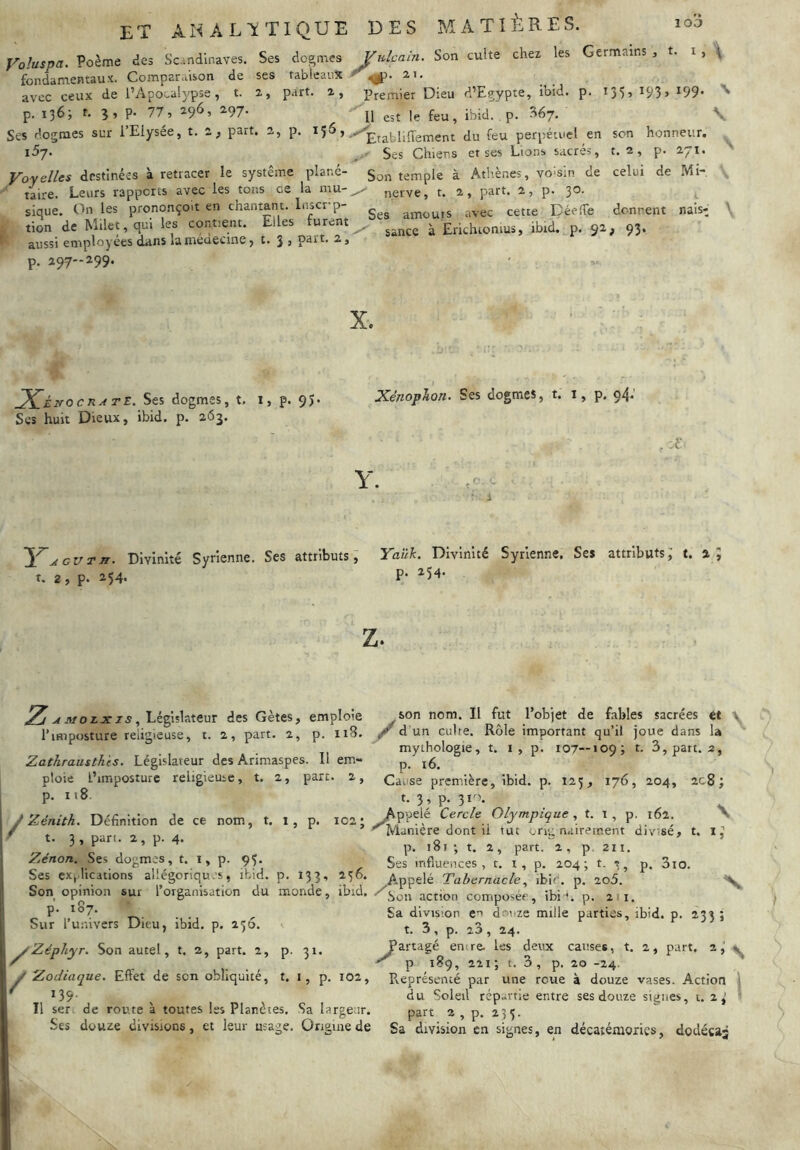 ET ANALYTIQUE DES MATIÈRES. 103
Voluspa. Poème des Scandinaves. Ses dogmes
fondamentaux. Comparaison de ses tableaux
avec ceux de l'Apocalypse, t. 2, part. 2,
p. 136; t. 3, p. 77, 296, 297.
Ses dogmes sur l'Elysée, t. 2, part. 2, p. 156,
157.
Voyelles destinées à retracer le système plané-
taire. Leurs rapports avec les tons de la mu-
sique. On les prononçoit en chantant. Inscrip-
tion de Milet, qui les contient. Elles furent
aussi employées dans la médecine, t. 3, part. 2,
p. 297--299.
Vulcain. Son culte chez les Germains, t. 1,
p. 21.
Premier Dieu d'Egypte, ibid. p. 135, 193, 199.
Il est le feu, ibid. p. 367.
Etablissement du feu perpétuel en son honneur.
Ses Chiens et ses Lions sacrés, t. 2, p. 271.
Son temple à Athènes, voisin de celui de Mi-
nerve, t. 2, part. 2, p. 30.
Ses amours avec cette Déesse donnent nais-
sance à Erichtonius, ibid. p. 92, 93.
X.
XÉNOCRATE. Ses dogmes, t. 1, p. 95.
Ses huit Dieux, ibid. p. 263.
Xénophon. Ses dogmes, t. 1, p. 94.
Y.
YAGUTH. Divinité Syrienne. Ses attributs,
t. 2, p. 254.
Yaük. Divinité Syrienne. Ses attributs, t. 2,
p. 254.
Z.
ZAMOLXIS, Législateur des Gètes, emploie
l'imposture religieuse, t. 2, part. 2, p. 118.
Zathrausthès. Législateur des Arimaspes. Il em-
ploie l'imposture religieuse, t. 2, part. 2,
p. 118.
Zénith. Définition de ce nom, t. 1, p. 102;
t. 3, part. 2, p. 4.
Zénon. Ses dogmes, t. 1, p. 95.
Ses explications allégoriques, ibid. p. 133, 256.
Son opinion sur l'organisation du monde, ibid.
p. 187.
Sur l'univers Dieu, ibid. p. 256.
Zéphyr. Son autel, t. 2, part. 2, p. 31.
Zodiaque. Effet de son obliquité, t. 1, p. 102,
139.
Il sert de route à toutes les Planètes. Sa largeur.
Ses douze divisions, et leur usage. Origine de
son nom. Il fut l'objet de fables sacrées et
d'un culte. Rôle important qu'il joue dans la
mythologie, t. 1, p. 107--109; t. 3, part. 2,
p. 16.
Cause première, ibid. p. 125, 176, 204, 208;
t. 3, p. 310.
Appelé Cercle Olympique, t. 1, p. 162.
Manière dont il fut originairement divisé, t. 1,
p. 181; t. 2, part. 2, p. 211.
Ses influences, t. 1, p. 204; t. 3, p. 310.
Appelé Tabernacle, ibid. p. 205.
Son action composée, ibid. p. 211.
Sa division en douze mille parties, ibid. p. 233;
t. 3, p. 23, 24.
Partagé entre les deux causes, t. 2, part. 2,
p. 189, 221; t. 3, p. 20-24.
Représenté par une roue à douze vases. Action
du Soleil répartie entre ses douze signes, t. 2,
part 2, p. 235.
Sa division en signes, en décatémories, dodéca-